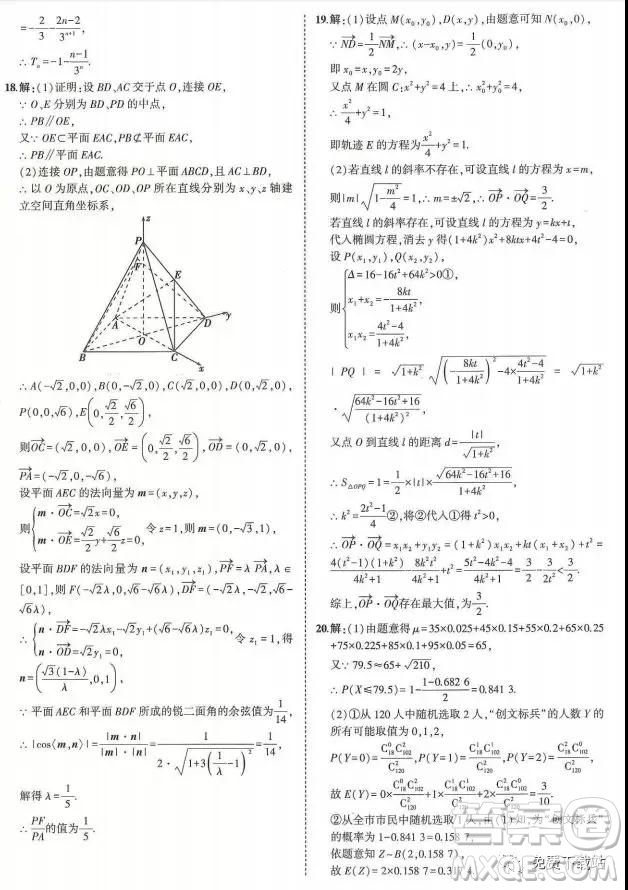 =-2/3-(2n-2)/3^(n+1),
∴T_n=-1-(n-1)/3^n.
18.解:(1)证明:设 BD、AC 交于点 O,连接 OE,
∵O、E 分别为 BD、PD 的中点,
∴PB∥OE,
又∵OE⊂平面 EAC,PB⊄平面 EAC,
∴PB∥平面 EAC.
(2)连接 OP,由题意得 PO⊥平面 ABCD,且 AC⊥BD,
∴以 O 为原点,OC、OD、OP 所在直线分别为 x、y、z 轴建
立空间直角坐标系,
z
P
F
E
A
D
y
O
B
C
x
∴A(-√2,0,0),B(0,-√2,0),C(√2,0,0),D(0,√2,0),
P(0,0,√6),E(0,√2/2,√6/2),
则OC→=(√2,0,0),OE→=(0,√2/2,√6/2),OD→=(0,√2,0),
PA→=(-√2,0,-√6),
设平面 AEC 的法向量为 m=(x,y,z),
则{m·OC→=√2x=0, m·OE→=√2/2y+√6/2z=0, 令 z=1,则 m=(0,-√3,1),
设平面 BDF 的法向量为 n=(x₁,y₁,z₁),PF→=λPA→,λ∈
[0,1],则 F(-√2λ,0,√6-√6λ),DF→=(-√2λ,-√2,√6-
√6λ),
∴{n·DF→=-√2λx₁-√2y₁+(√6-√6λ)z₁=0, n·OD→=√2y₁=0, 令 z₁=1,得
n=(√3(1-λ)/λ,0,1),
∵平面 AEC 和平面 BDF 所成的锐二面角的余弦值为1/14,
∴|cos⟨m,n⟩|=|m·n|/(|m|·|n|)=1/(2·√(1+3(1/λ-1)²))=1/14,
解得 λ=1/5.
∴PF/PA的值为1/5.
19.解:(1)设点 M(x₀,y₀),D(x,y),由题意可知 N(x₀,0),
∵ND→=1/2NM→,∴(x-x₀,y)=1/2(0,y₀),
即 x₀=x,y₀=2y,
又点 M 在圆 C:x²+y²=4 上,∴x₀²+y₀²=4,
∴x²/4+y²=1,
即轨迹 E 的方程为x²/4+y²=1.
(2)若直线 l 的斜率不存在,可设直线 l 的方程为 x=m,
则|m|√(1-m²/4)=1,∴m=±√2,∴OP→·OQ→=3/2.
若直线 l 的斜率存在,可设直线 l 的方程为 y=kx+t,
代入椭圆方程,消去 y 得(1+4k²)x²+8ktx+4t²-4=0,
设 P(x₁,y₁),Q(x₂,y₂),
则{Δ=16-16t²+64k²>0①, x₁+x₂=-8kt/(1+4k²), x₁x₂=(4t²-4)/(1+4k²),
|PQ|=√(1+k²)√((-8kt/(1+4k²))²-4×(4t²-4)/(1+4k²))=√(1+k²)
·√((64k²-16t²+16)/(1+4k²)²),
又点 O 到直线 l 的距离 d=|t|/√(1+k²),
∴S△OPQ=1=1/2×|t|×√(64k²-16t²+16)/(1+4k²),
∴k²=(2t²-1)/4②,将②代入①得 t²>0,
∴OP→·OQ→=x₁x₂+y₁y₂=(1+k²)x₁x₂+kt(x₁+x₂)+t²=
4(t²-1)(1+k²)/(4k²+1)-8k²t²/(4k²+1)+t²=(5t²-4k²-4)/(4k²+1)=3/2-3/(2t²)<3/2.
综上,OP→·OQ→存在最大值,为3/2.
20.解:(1)由题意得 μ=35×0.025+45×0.15+55×0.2+65×0.25
+75×0.225+85×0.1+95×0.05=65,
又∵79.5≈65+√210,
∴P(X≤79.5)=1-(1-0.682 6)/2=0.841 3.
(2)①从 120 人中随机选取 2 人,“创文标兵”的人数 Y 的
所有可能取值为 0,1,2,
P(Y=0)=C⁰₁₈C²₁₀₂/C²₁₂₀,P(Y=1)=C¹₁₈C¹₁₀₂/C²₁₂₀,P(Y=2)=C²₁₈C⁰₁₀₂/C²₁₂₀,
故 E(Y)=0×C⁰₁₈C²₁₀₂/C²₁₂₀+1×C¹₁₈C¹₁₀₂/C²₁₂₀+2×C²₁₈C⁰₁₀₂/C²₁₂₀=3/10.
②从全市市民中随机选取 人,由(1)知,为“创文标兵”
的概率为 1-0.841 3=0.158 7,
依题意知 Z~B(2,0.158 7),
故 E(Z)=2×0.158 7=0.317 4.
答案圈
免费下载站